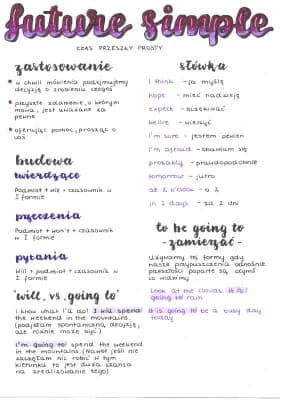 future simple
CZAS PRZESZŁY PROSTY
zastosowanie
w chwili mówienia podejmujemy
decyzję o zrobieniu czegoś
przyszłe zdarzenie, o którym
mowa, jest uważane za
pewne
oferując pomoc, prosząc o
coś
budowa
twierdzące
Podmiot + will + czasownik w
I formie
przeczenia
Podmiot + won't + czasownik
w I formie
pytania
Will + podmiot + czasownik w
I formie
"will vs. going to"
I know what I'll do! I will spend
the weekend in the mountains.
(podjęłam spontaniczną decyzję,
ale różnie może być)
I'm going to spend the weekend
in the mountains. (Nawet jeśli nie
zaczęłam nic robić w tym
kierunku to jest duża szansa
na zrealizowanie tego)
słówka
I think - ja myślę
hope - mieć nadzieję
expect - oczekiwać
belive - wierzyć
I'm sure - jestem pewien
I'm afraid - obawiam się
probably - prawdopodobnie
tomorrow - jutro
at 2 o'clock - o 2
in 2 days - za 2 dni
to be going to
-zamierzać-
Używamy tej formy gdy
nasze przypuszczenia odnośnie
przeszłości poparte są czymś
co widzimy
Look at the clouds. It is
going to rain
It is going to be a busy day
today